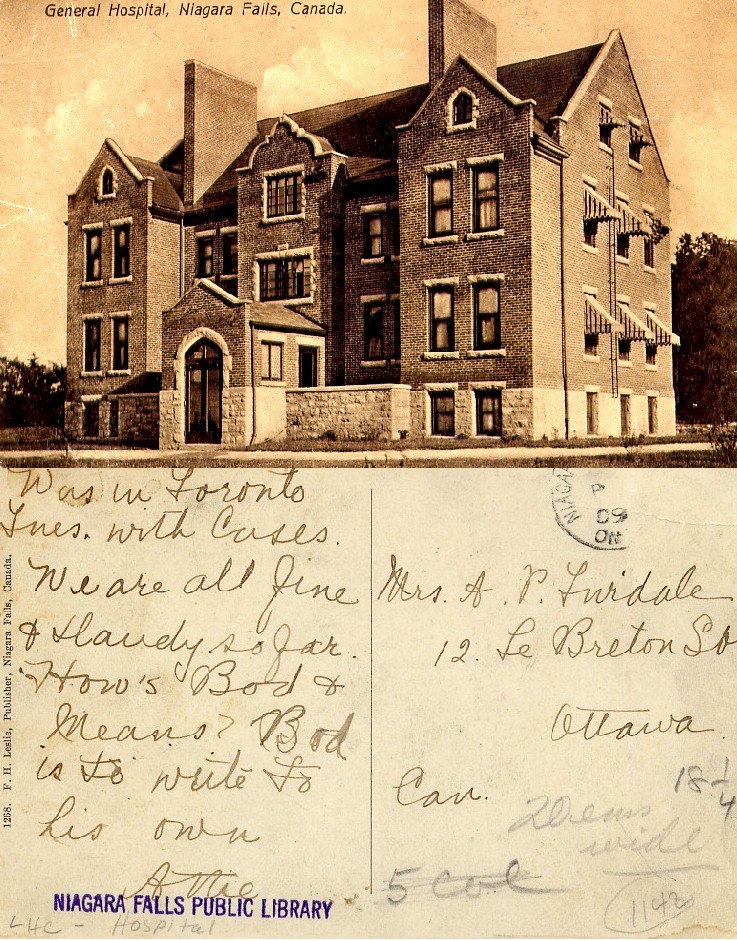 General Hospital, Niagara Falls, Canada.
Was in Toronto
Tues. with Cases.
We are all fine
& Handy so far.
How's Bod &
Means? Bod
is to write to
his own
Attie
1268. F. H. Leslie, Publisher, Niagara Falls, Canada.
NIAGARA
09
ON
Mrs. A. P.
12. Le Breton St
Ottawa
Can.
18 1/4
20 ems
wide
5 col
1142
NIAGARA FALLS PUBLIC LIBRARY
LHC - Hospital